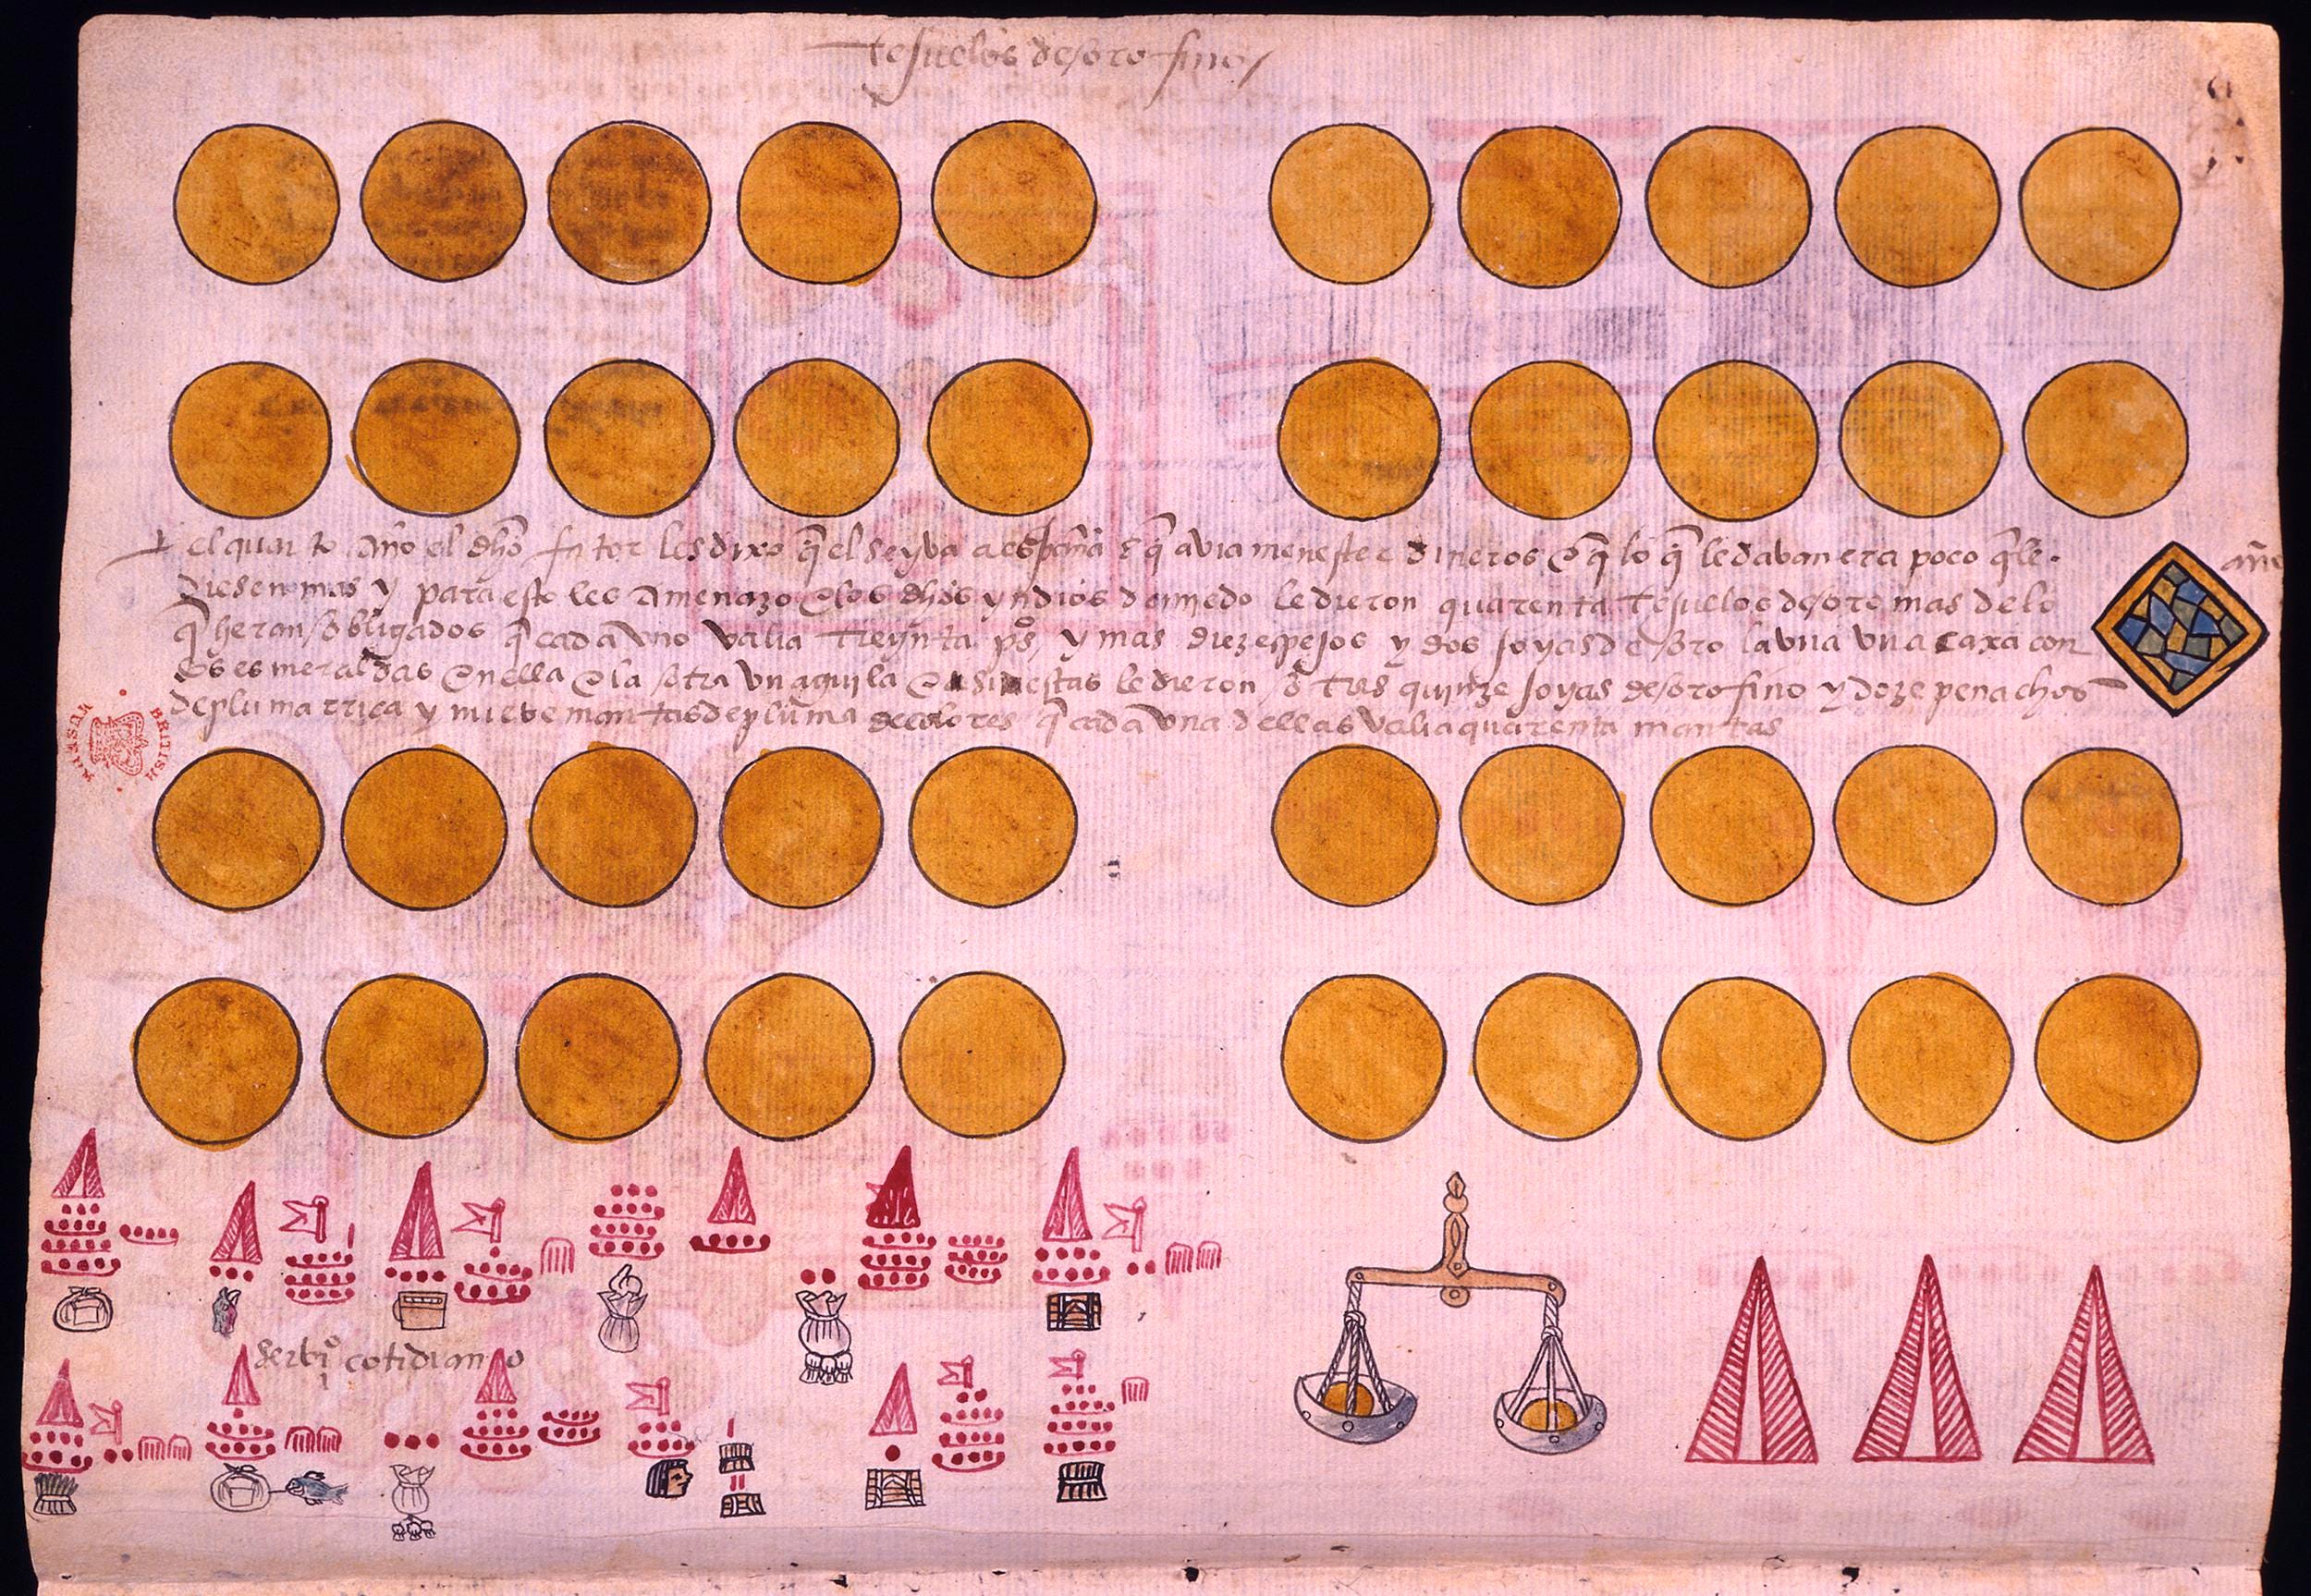 tesuelos de oro fino
el quarto año el dho fator les dixo q̃ el se yva a españa e q̃ avia menester dineros e q̃ lo q̃ le davan era poco q̃ le
diesen mas y para esto les amenazo e los dhos yndios de miedo le dieron quarenta tesuelos de oro mas de lo
q̃ heran obligados q̃ cada vno valia treynta ps, y mas diez espejos y dos joyas de oro la vna vna caxa con
esmeraldas en ella e la otra vn aguila estas le dieron o tras quinze joyas de oro fino y doze penachos
de pluma rrica y mantas de pluma de colores q̃ cada vna dellas valia quarenta mantas
año
BRITISH MUSEUM
cotidiano